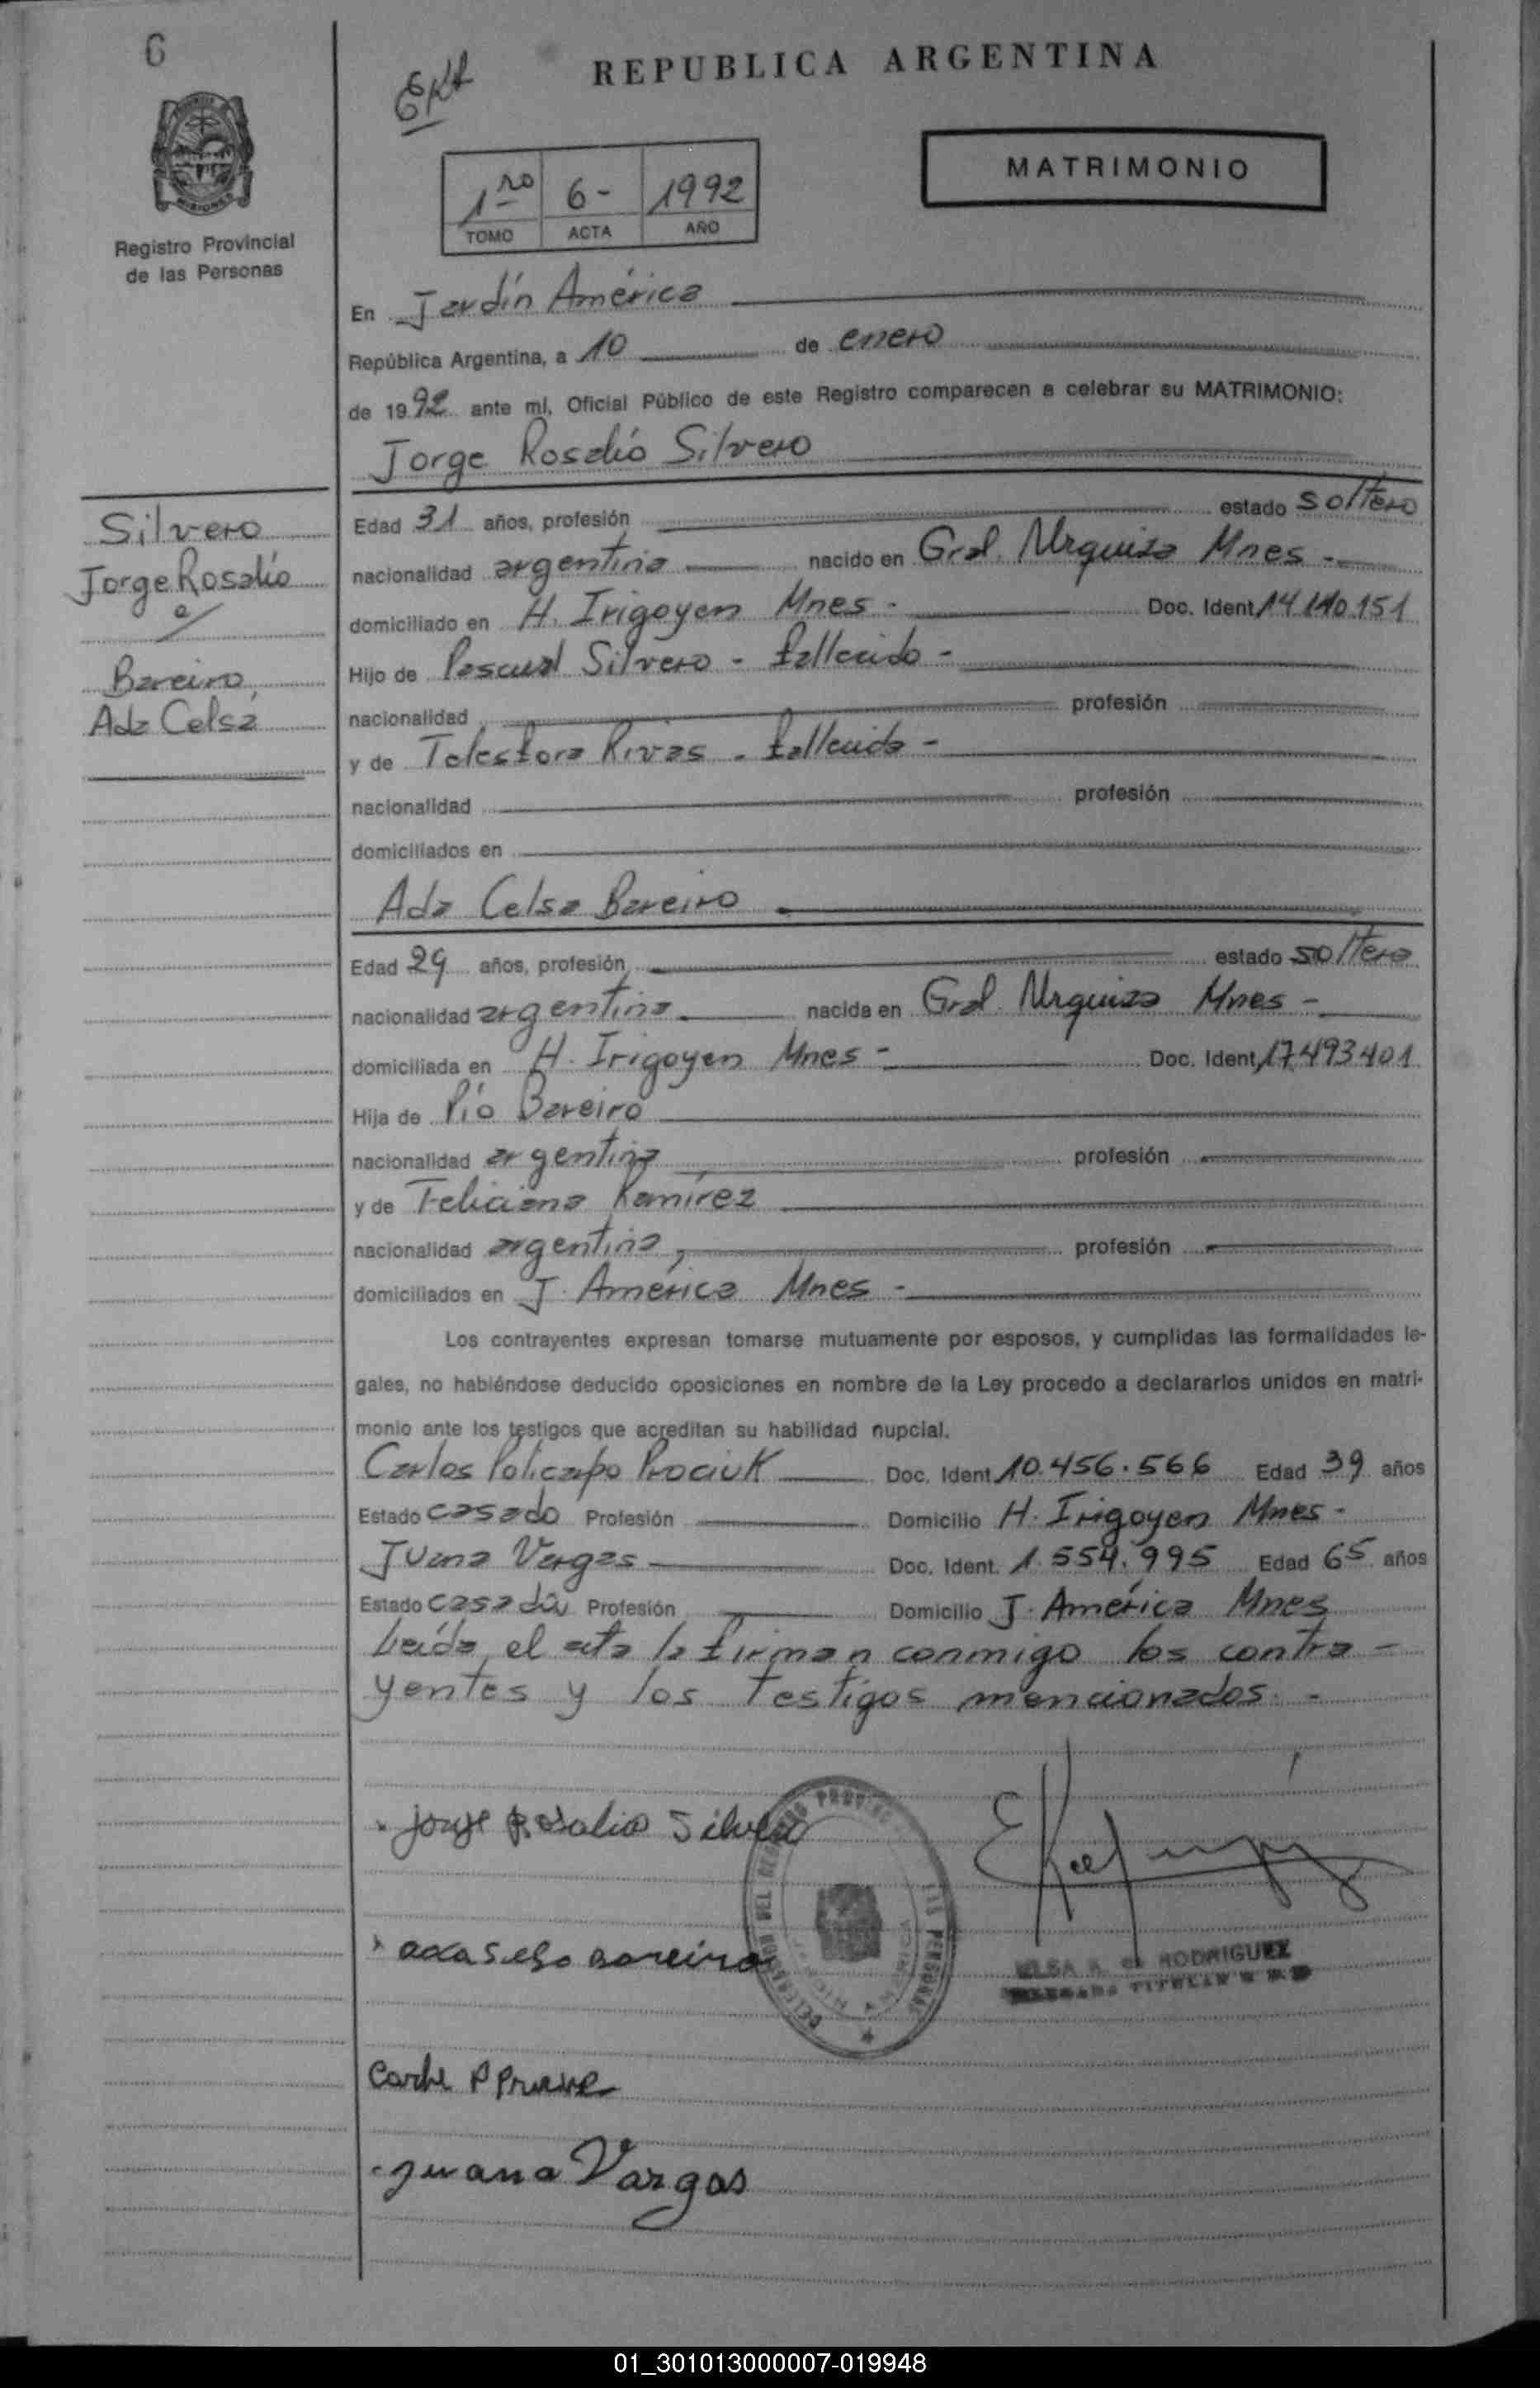 6
Ext
REPUBLICA ARGENTINA
MATRIMONIO
1ro 6- 1992
TOMO ACTA AÑO
Registro Provincial
de las Personas
En Jardín América
República Argentina, a 10 de enero
de 1992 ante mí, Oficial Público de este Registro comparecen a celebrar su MATRIMONIO:
Jorge Rosalío Silvero
Silvero
Jorge Rosalío
Bareiro,
Ada Celsa
Edad 31 años, profesión estado soltero
nacionalidad argentina nacido en Gral. Urquiza Mnes -
domiciliado en H. Irigoyen Mnes - Doc. Ident. 14.110.151
Hijo de Pascual Silvero - fallecido -
nacionalidad profesión
y de Telesfora Rivas - fallecida -
nacionalidad profesión
domiciliados en
Ada Celsa Bareiro
Edad 29 años, profesión estado soltera
nacionalidad argentina nacida en Gral. Urquiza Mnes -
domiciliada en H. Irigoyen Mnes - Doc. Ident. 17.493.401
Hija de Pío Bareiro
nacionalidad argentina profesión
y de Feliciana Ramírez
nacionalidad argentina, profesión
domiciliados en J. América Mnes -
Los contrayentes expresan tomarse mutuamente por esposos, y cumplidas las formalidades le-
gales, no habiéndose deducido oposiciones en nombre de la Ley procedo a declararlos unidos en matri-
monio ante los testigos que acreditan su habilidad nupcial.
Carlos Policarpo Prociuk Doc. Ident. 10.456.566 Edad 39 años
Estado casado Profesión Domicilio H. Irigoyen Mnes -
Juana Vargas Doc. Ident. 1.554.995 Edad 65 años
Estado casada Profesión Domicilio J. América Mnes
Leída el acta la firman conmigo los contra-
yentes y los testigos mencionados. -
Jorge Rosalio Silvero
Bareiro
RODRIGUEZ
TITULAR
Juana Vargas
01_301013000007-019948